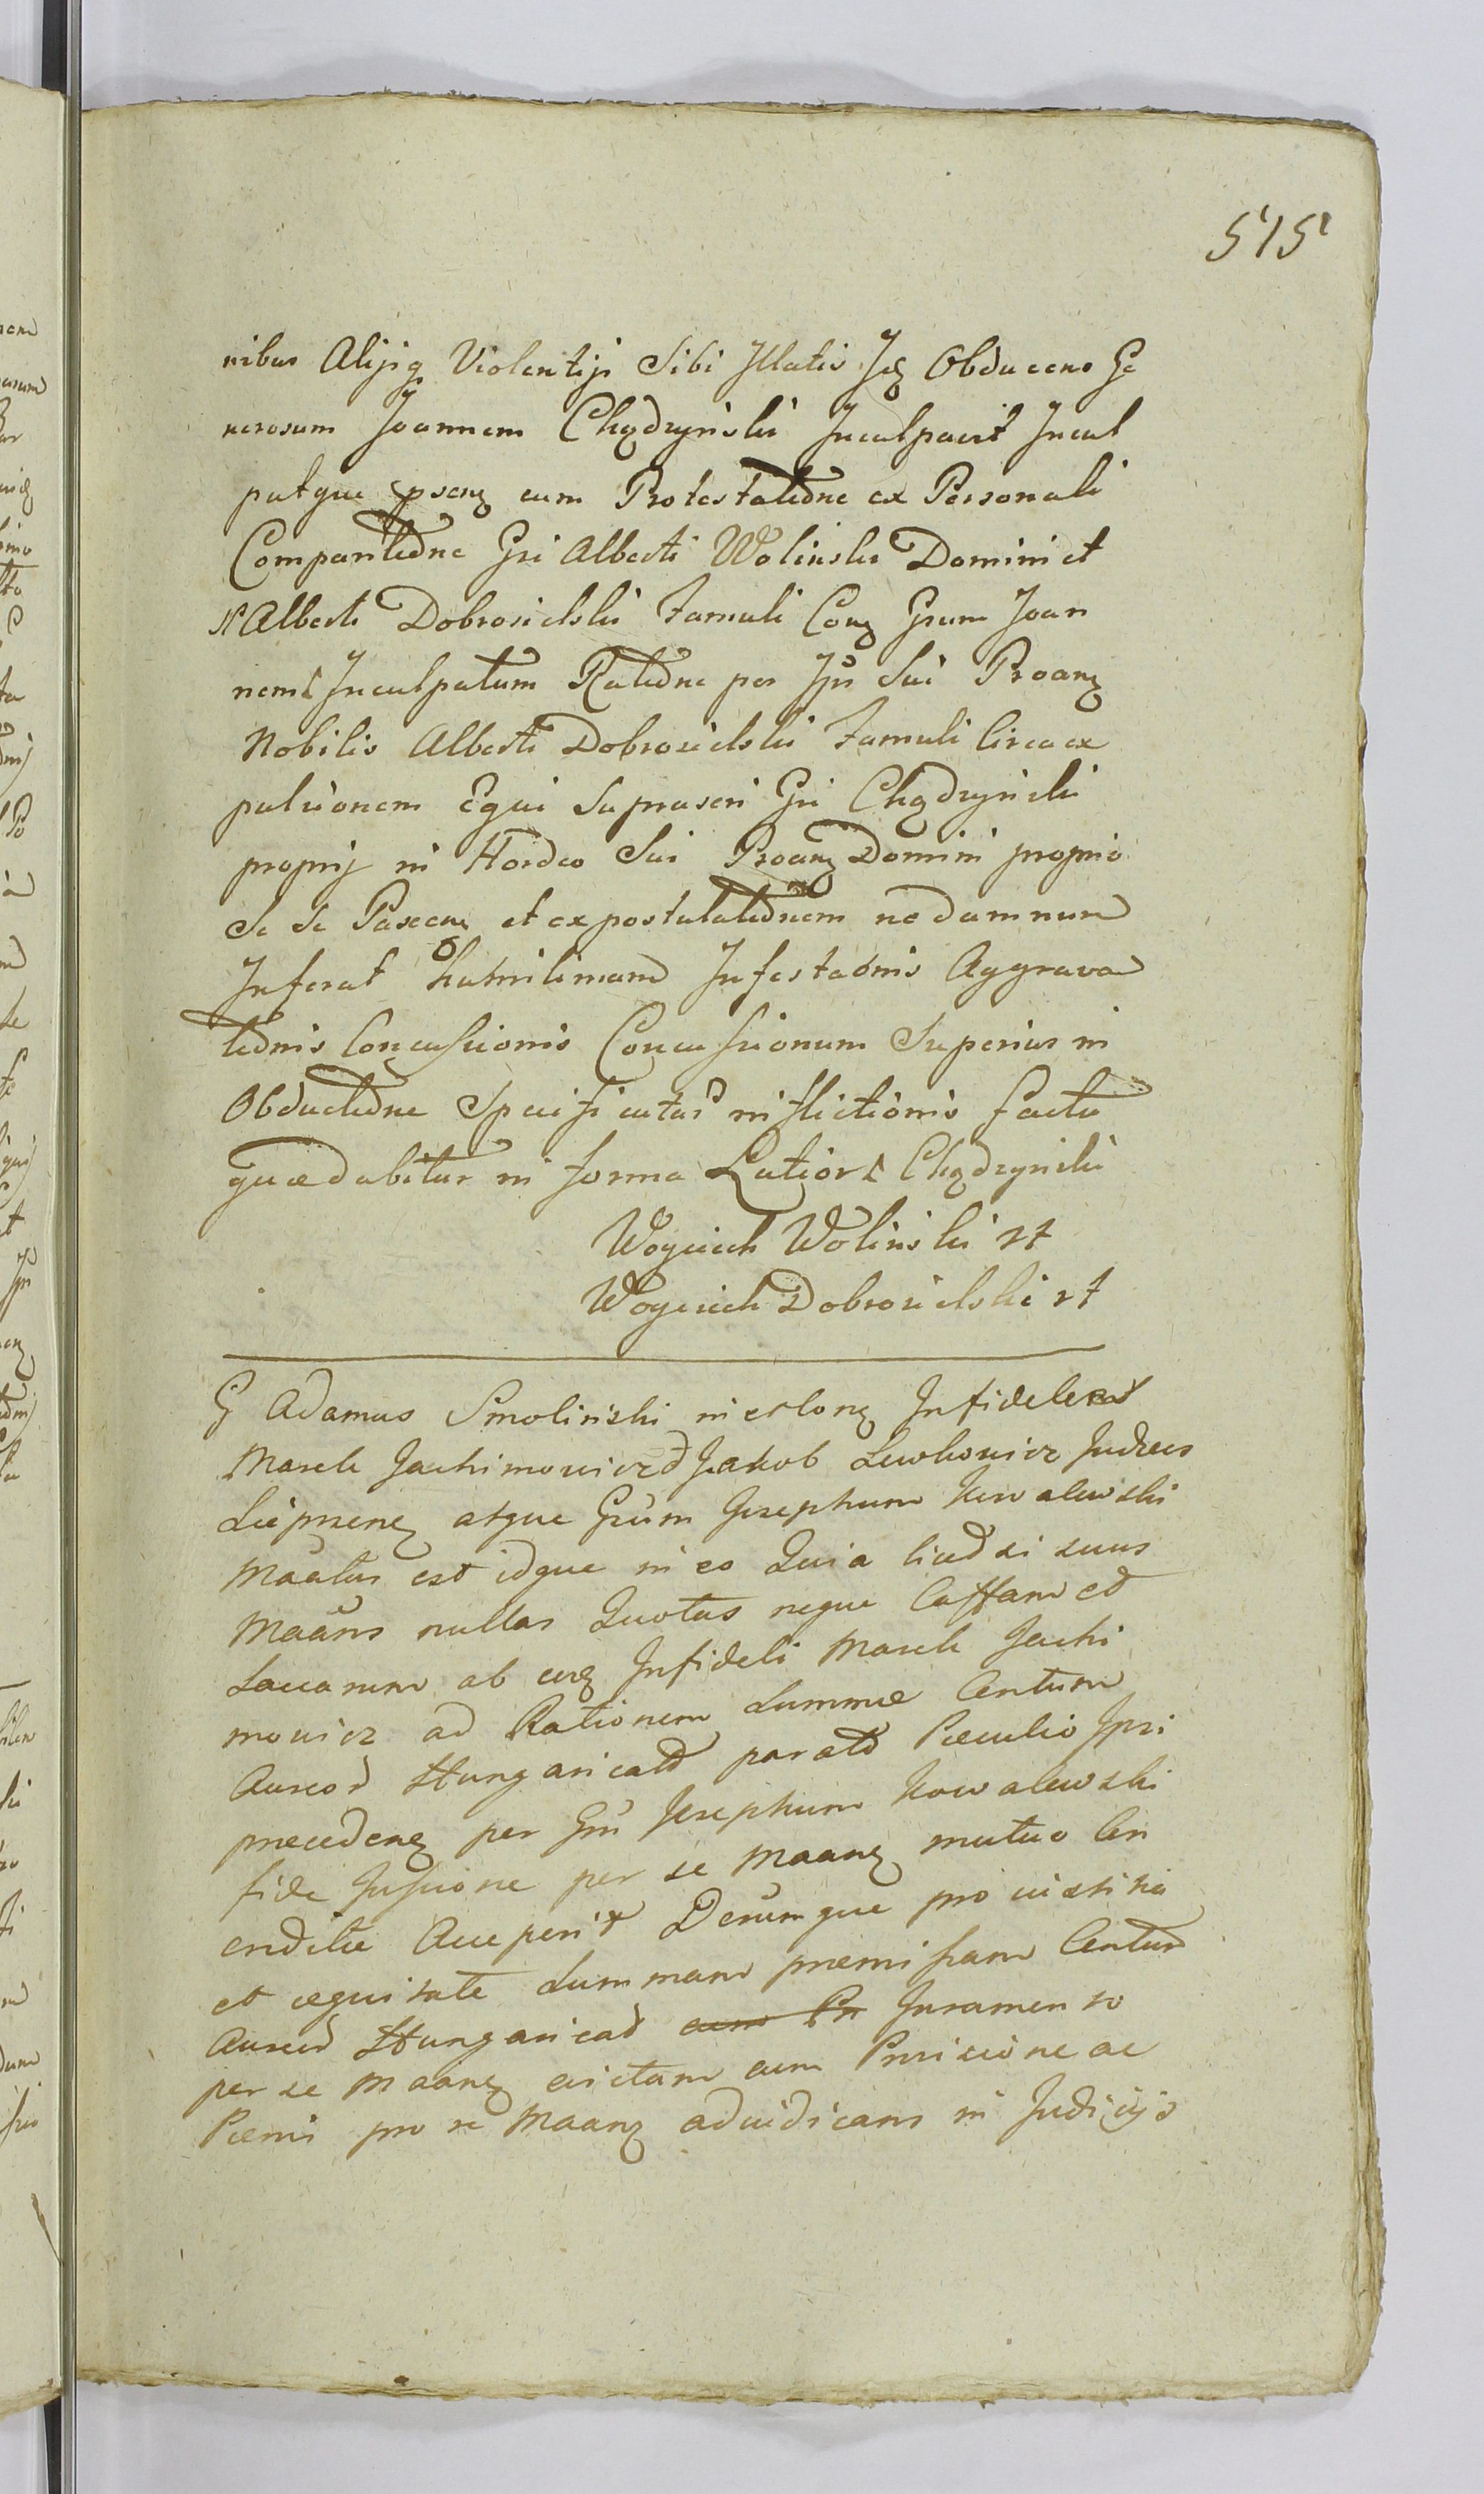 515
nibus Alijsq Violentijs Sibi Illatis Jdq Obducens Ge
nerosum Joannem Chądzyński Inculpavit Incul
patque psens cum Protestatione ex Personali
Comparitione Gsi Alberti Wolinski Domini et
N Alberti Dobrosielski Famuli Conq Gsum Joan
nem Inculpatum Ratione per Ipm Sui Proanq
Nobilis Alberti Dobrosielski Famuli Circa ex
pulsionem Equi Suprascri Gsi Chądzyński
proprij in Hordeo Sui Proanq Domini proprio
Se Se Pascen et expostulationem ne damnum
Inferat humilimam Infestaonis Aggrava
tionis Concussionis Concussionum Superius in
Obductione Specificatar inflictionis factu
quae dabitur in forma Latiori Chądzyński
Woyciech Wolinski rt
Woyciech Dobrosielski rt
G Adamus Smolinski in et conq Infideles
Marek Jachimowicz Jakob Lewkowicz Judaeos
atque Gsum Josephum Kowalewski
Maatus est idque in eo Quia licet si suus
Maans nullas Quotas neque Cassam et
ab eodq Infideli Marek Jachi
mowicz ad Rationem Summae Centum
Aureor Hungaricalm parato Peculio Ipsi
precedenq per Gsu Josephum Kowalewski
fide Jussione per se Maanq mutuo Cre
ditae Acceperit Demumque pro iustitia
et aequitate Summam premissam Centum
Aureor Hungarical cum Pn Juramento
per se Maanq evictam cum Provisione ac
Poenis pro se Maanq adiudicans in Judicijs